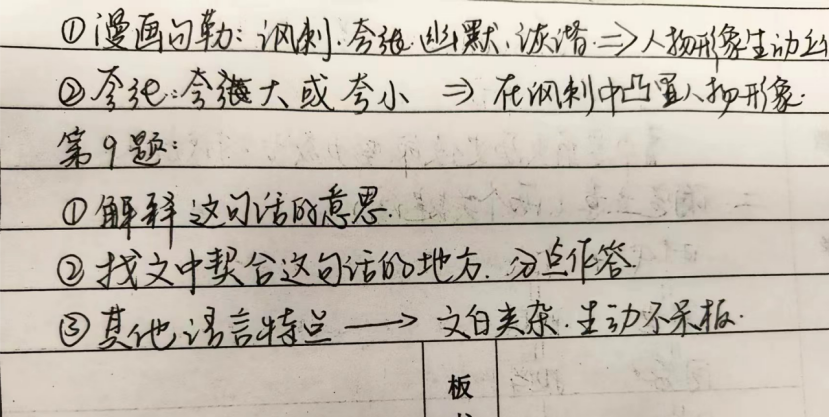 ①漫画勾勒：讽刺．夸张．幽默．诙谐．⇒人物形象生动
②夸张：夸大或夸小 ⇒ 在讽刺中凸显人物形象．
第9题：
①解释这句话的意思．
②找文中契合这句话的地方．分点作答
③其他语言特点 → 文白夹杂．生动不呆板．
板